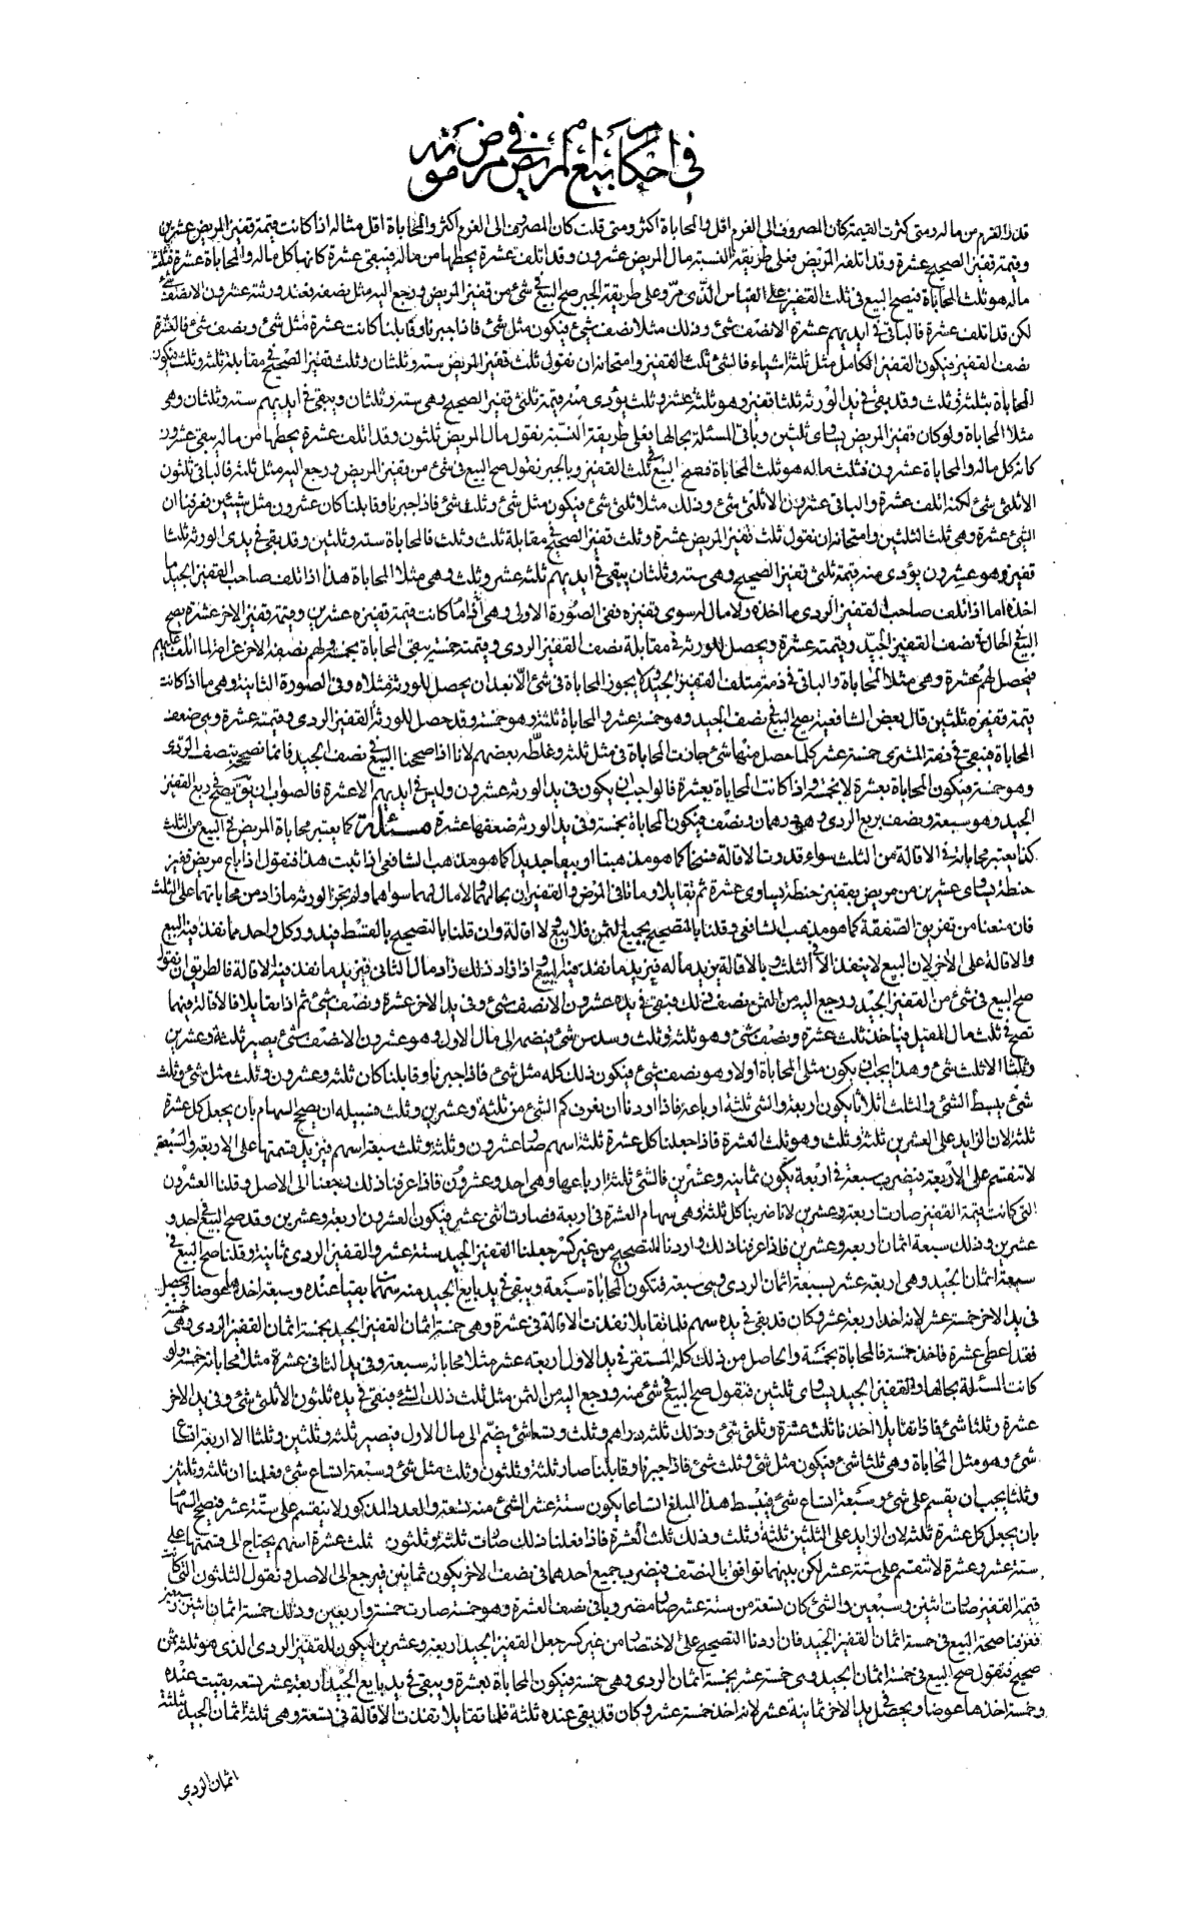 في احكام بيع المريض في مرض موته
قدر الغرم من ماله ومتى كثرت القيمة كان المصروف الى الغرم اقل والمحاباة اكثر ومتى قلت كان المصروف الى الغرم اكثر والمحاباة اقل مثاله اذا كانت قيمة قفيز المريض عشرين
وقيمة قفيز الصحيح عشرة وقد اتلفه المريض فعلى طريقة النسبة مال المريض عشرون وقد اتلف عشرة يحطها من ماله فيبقى عشرة كانها كل ماله والمحاباة عشرة فثلث
ماله هو ثلث المحاباة فيصح البيع في ثلث القفيز على القياس الذي مر وعلى طريقة الجبر صح البيع في شئ من قفيز المريض ورجع اليه مثل نصفه فعند ورثته عشرون الا نصف شئ
لكن قد اتلف عشرة فالباقي في ايديهم عشرة الا نصف شئ وذلك مثلا نصف شئ فيكون مثل شئ فاذا جبرنا وقابلنا كانت عشرة مثل شئ ونصف شئ فالعشرة
نصف القفيز فيكون القفيز الكامل مثل ثلثة اشياء فالشئ ثلث القفيز وامتحانه ان نقول ثلث قفيز المريض ستة وثلثان وثلث قفيز الصحيح في مقابلة ثلثة وثلث فيكون
المحاباة بثلثة وثلث وقد بقي في يد الورثة ثلثا قفيز وهو ثلثة عشر وثلث يؤدى منه قيمة ثلثي قفيز الصحيح وهي ستة وثلثان ويبقى في ايديهم ستة وثلثان وهو
مثلا المحاباة ولو كان قفيز المريض يساوى ثلثين وباقي المسئلة بحالها فعلى طريقة النسبة نقول مال المريض ثلثون وقد اتلف عشرة يحطها من ماله يبقى عشرون
كانه كل ماله والمحاباة عشرون فثلث ماله هو ثلث المحاباة فصح البيع في ثلث القفيز وبالجبر نقول صح البيع في شئ من قفيز المريض ورجع اليه مثل ثلثه فالباقي ثلثون
الا ثلثي شئ لكنه اتلف عشرة والباقي عشرون الا ثلثي شئ وذلك مثلا ثلثي شئ فيكون مثل شئ وثلث شئ فاذا جبرنا وقابلنا كان عشرون مثل شيئين فعرفنا ان
الشئ عشرة وهي ثلث الثلثين وامتحانه ان نقول ثلث قفيز المريض عشرة وثلث قفيز الصحيح في مقابلة ثلث وثلث فالمحاباة ستة وثلثين وقد بقي في يدى الورثة ثلثا
قفيز وهو عشرون يؤدى منه قيمة ثلثي قفيز الصحيح وهي ستة وثلثان يبقى في ايديهم ثلثة عشر وثلث وهي مثلا المحاباة هذا اذا اتلف صاحب القفيز الجيد ما
اخذه اما اذا تلف صاحب القفيز الردى ما اخذه ولا مال له سوى قفيزه ففي الصورة الاولى وهي اذا ما كانت قيمة قفيزه عشرين وقيمة قفيز الاخر عشرة يصح
البيع في الحال في نصف القفيز الجيد وقيمته عشرة ويحصل للورثة في مقابلة نصف القفيز الردى وقيمته خمسة يبقى المحاباة بخمسة ولهم نصفه الاخر غرامة لما اتلف عليهم
فيحصل لهم عشرة وهي مثلا المحاباة والباقي في ذمة متلف القفيز الجيد ولا يجوز المحاباة في شئ الا بعد ان يحصل للورثة مثلاه وفي الصورة الثانية وهي ما اذا كانت
قيمة قفيزه ثلثين قال بعض الشافعية يصح البيع في نصف الجيد وهو خمسة عشر والمحاباة ثلثه وهو خمسة وقد حصل للورثة القفيز الردى وقيمته عشرة وهي ضعف
المحاباة فيبقى في ذمة المشترى خمسة عشر كلما حصل منها شئ جازت المحاباة في مثل ثلثه وغلطه بعضهم لانا اذا صححنا البيع في نصف الجيد فانما نصححه بنصف الردى
وهو خمسة فيكون المحاباة بعشرة لا بخمسة واذا كانت المحاباة بعشرة فالواجب ان يكون في يد الورثة عشرون وليس في ايديهم الا عشرة فالصواب ان يقال يصح في ربع القفيز
الجيد وهو سبعة ونصف بربع الردى وهو درهمان ونصف فيكون المحاباة بخمسة وفي يد الورثة ضعفها عشرة مسئلة كما يعتبر محاباة المريض في البيع من الثلث
كذا يعتبر محاباته في الاقالة من الثلث سواء قدرت الاقالة فسخا كما هو مذهبنا او بيعا جديدا كما هو مذهب الشافعي اذا ثبت هذا فنقول اذا باع مريض قفيز
حنطة يساوى عشرين من مريض بقفيز حنطة يساوى عشرة ثم تقايلا وماتا في المرض والقفيزان بحالهما ولا مال لهما سواهما ولم يجز الورثة ما زاد من محاباتهما على الثلث
فان منعنا من تفريق الصفقة كما هو مذهب الشافعي وقلنا بالتصحيح بجميع الثمن فلا بيع ولا اقالة وان قلنا بالتصحيح بالقسط فيدور كل واحد مما نفذ فيه البيع
والاقالة على الاخر لان البيع لا ينفذ الا في الثلث وبالاقالة يزيد ماله فيزيد ما نفذ فيه البيع واذا زاد ذلك زاد مال الثاني فيزيد ما نفذ فيه الاقالة فالطريق ان نقول
صح البيع في شئ من القفيز الجيد ورجع اليه من الثمن نصف ذلك فبقي في يده عشرون الا نصف شئ وفي يد الاخر عشرة ونصف شئ ثم اذا تقايلا فالاقالة فيهما
تصح في ثلث مال المقيل فيأخذ ثلث عشرة ونصف شئ وهو ثلثة وثلث وسدس شئ فيضمه الى مال الاول وهو عشرون الا نصف شئ يصير ثلثة وعشرين
وثلثا الا ثلث شئ وهذا يجب ان يكون مثلي المحاباة اولا وهو نصف شئ فيكون ذلك كله مثل شئ فاذا جبرنا وقابلنا كان ثلثة وعشرون وثلث مثل شئ وثلث
شئ يبسط الشئ والثلث اثلاثا يكون اربعة والشئ ثلثة ارباعه فاذا اردنا ان نعرف كم الشئ من ثلثة وعشرين وثلث فسبيله ان يصح السهام بان يجعل كل عشرة
ثلثة لان الزايد على العشرين ثلثة وثلث وهو ثلث العشرة فاذا جعلنا كل عشرة ثلثة اسهم صار عشرون وثلثة وثلث سبعة اسهم فيزيد قسمتها على الاربعة والسبعة
لا تقسم على الاربعة فيضرب سبعة في اربعة يكون ثمانية وعشرين فالشئ ثلثة ارباعها وهي احد وعشرون فاذا عرفنا ذلك رجعنا الى الاصل وقلنا العشرون
التي كانت قيمة القفيز صارت اربعة وعشرين لانا ضربنا كل ثلثة وهي سهام العشرة في اربعة فصارت اثنى عشر فيكون العشرون اربعة وعشرين وقد صح البيع في احد و
عشرين وذلك سبعة اثمان اربعة وعشرين فاذا عرفنا ذلك واردنا التصحيح من غير كسر جعلنا القفيز الجيد ستة عشر والقفيز الردى ثمانية وقلنا صح البيع في
سبعة اثمان الجيد وهي اربعة عشر بسبعة اثمان الردى وهي سبعة فتكون المحاباة سبعة ويبقى في يد بايع الجيد منه سهمان بقيا عنده وسبعة اخذها عوضا ويحصل
في يد الاخر خمسة عشر لانه اخذ اربعة عشر وكان قد بقي في يده سهم فلما تقايلا نفذت الاقالة في عشرة وهي خمسة اثمان القفيز الجيد بخمسة اثمان القفيز الردى وهي خمسة
فقد اعطى عشرة فاخذ خمسة فالمحاباة بخمسة والحاصل من ذلك كله المستقر في يد الاول اربعة عشر مثلا محاباته سبعة وفي يد الثاني عشرة مثلا محاباته خمسة ولو
كانت المسئلة بحالها والقفيز الجيد يساوى ثلثين فنقول صح البيع في شئ منه ورجع اليه من الثمن مثل ثلث ذلك الشئ فبقي في يده ثلثون الا ثلثي شئ وفي يد الاخر
عشرة وثلثا شئ فاذا تقايلا اخذنا ثلث عشرة وثلثي شئ وذلك ثلثة دراهم وثلث وتسعا شئ يضم الى مال الاول فيصير ثلثة وثلثين وثلثا الا اربعة اتساع
شئ وهو مثل المحاباة وهي ثلثا شئ فيكون مثل شئ وثلث شئ فاذا جبرنا وقابلنا صار ثلثة وثلثون وثلث مثل شئ وسبعة اتساع شئ فعلمنا ان ثلثة وثلثين
وثلثا يجب ان يقسم على شئ وسبعة اتساع شئ فيبسط هذا المبلغ اتساعا يكون ستة عشر الشئ منه تسعة والعدد المذكور لا ينقسم على ستة عشر فيصح السهام
بان يجعل كل عشرة ثلثة لان الزايد على الثلثين ثلثة وثلث وذلك ثلث العشرة فاذا فعلنا ذلك صارت ثلثة وثلثون وثلث عشرة اسهم يحتاج الى قسمتها على
ستة عشر وعشرة لا تقسم على ستة عشر لكن بينهما توافق بالنصف فيضرب جميع احدهما في نصف الاخر يكون ثمانين فيرجع الى الاصل ونقول الثلثون التي كانت
قيمة القفيز صارت اثنين وسبعين والشئ كان تسعة من ستة عشر صار مضروبا في نصف العشرة وهو خمسة صارت خمسة واربعين وذلك خمسة اثمان اثنين وسبعين
فعرفنا صحة البيع في خمسة اثمان القفيز الجيد فان اردنا التصحيح على الاختصار من غير كسر جعل القفيز الجيد اربعة وعشرين ليكون للقفيز الردى الذى هو ثلثه ثمن
صحيح فنقول صح البيع في خمسة اثمان الجيد وهي خمسة عشر بخمسة اثمان الردى وهي خمسة فيكون المحاباة بعشرة ويبقى في يد بايع الجيد اربعة عشر تسعة بقيت عنده
وخمسة اخذها عوضا ويحصل في يد الاخر ثمانية عشر لانه اخذ خمسة عشر وكان قد بقي عنده ثلثة فلما تقايلا نفذت الاقالة في تسعة وهي ثلثة اثمان الجيد بثلثة
اثمان الردي